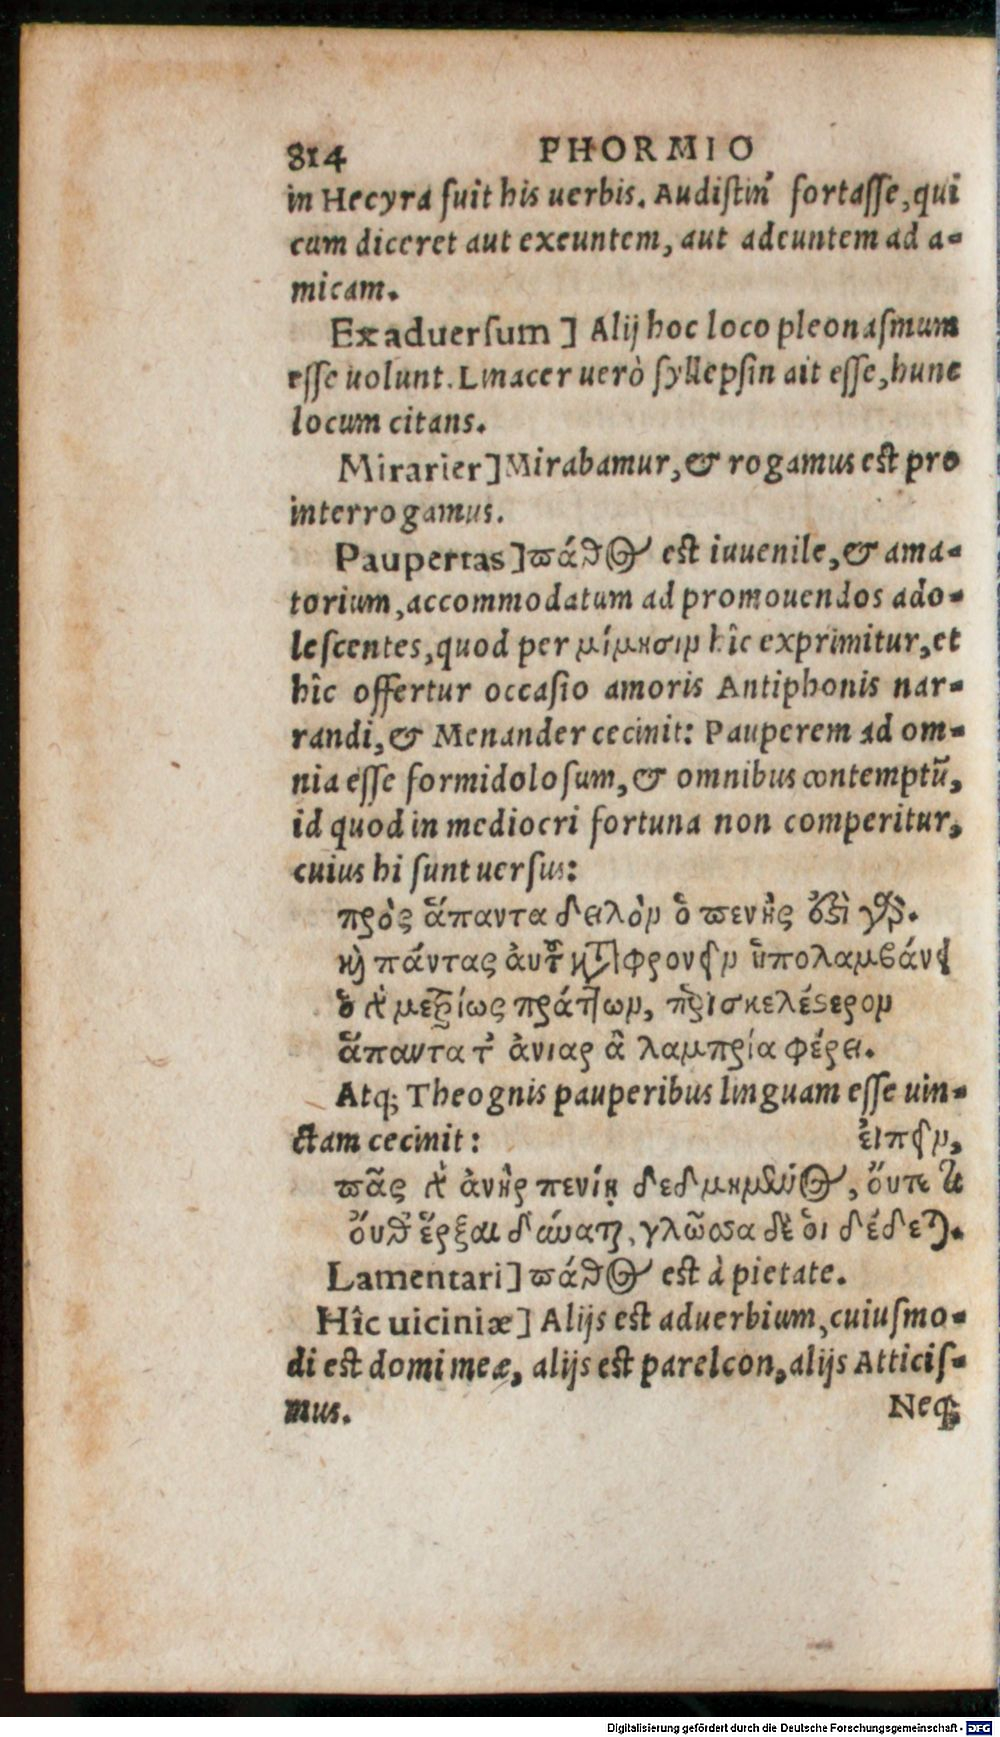 814 PHORMIO
in Hecyra fuit his uerbis. Audiſtin' fortaſſe, qui
cum diceret aut exeuntem, aut adeuntem ad a-
micam.
Exaduerſum] Alij hoc loco pleonaſmum
eſſe uolunt. Linacer uerò ſyllepſin ait eſſe, hunc
locum citans.
Mirarier] Mirabamur, & rogamus eſt pro
interrogamus.
Paupertas] πάθος eſt iuuenile, & ama-
torium, accommodatum ad promouendos ado-
leſcentes, quod per μίμησιν hîc exprimitur, et
hîc offertur occaſio amoris Antiphonis nar-
randi, & Menander cecinit: Pauperem ad om-
nia eſſe formidoloſum, & omnibus contemptũ,
id quod in mediocri fortuna non comperitur,
cuius hi ſunt uerſus:
πρὸς ἅπαντα δειλὸν ὁ πενὴς ὄξὶ γὰρ.
καὶ πάντας ἀυτ καταφρονεῖν ὑπολαμβάνει
ὁ δὲ μετρίως πράττων, περισκελέστερον
ἅπαντα τ' ἀνιαρ ἂ λαμπρία φέρει.
Atq; Theognis pauperibus linguam eſſe uin-
ctam cecinit: ἐιπεῖν,
πᾶς δὲ ἀνὴρ πενίῃ δεδμημένος, ὄυτε τι
ὄυθ' ἕρξαι δύναται, γλῶσσα δὲ ὁι δέδεται.
Lamentari] πάθος eſt à pietate.
Hîc uiciniæ] Alijs eſt aduerbium, cuiuſmo-
di eſt domi meæ, alijs eſt parelcon, alijs Atticiſ-
mus. Neq;
Digitalisierung gefördert durch die Deutsche Forschungsgemeinschaft - DFG